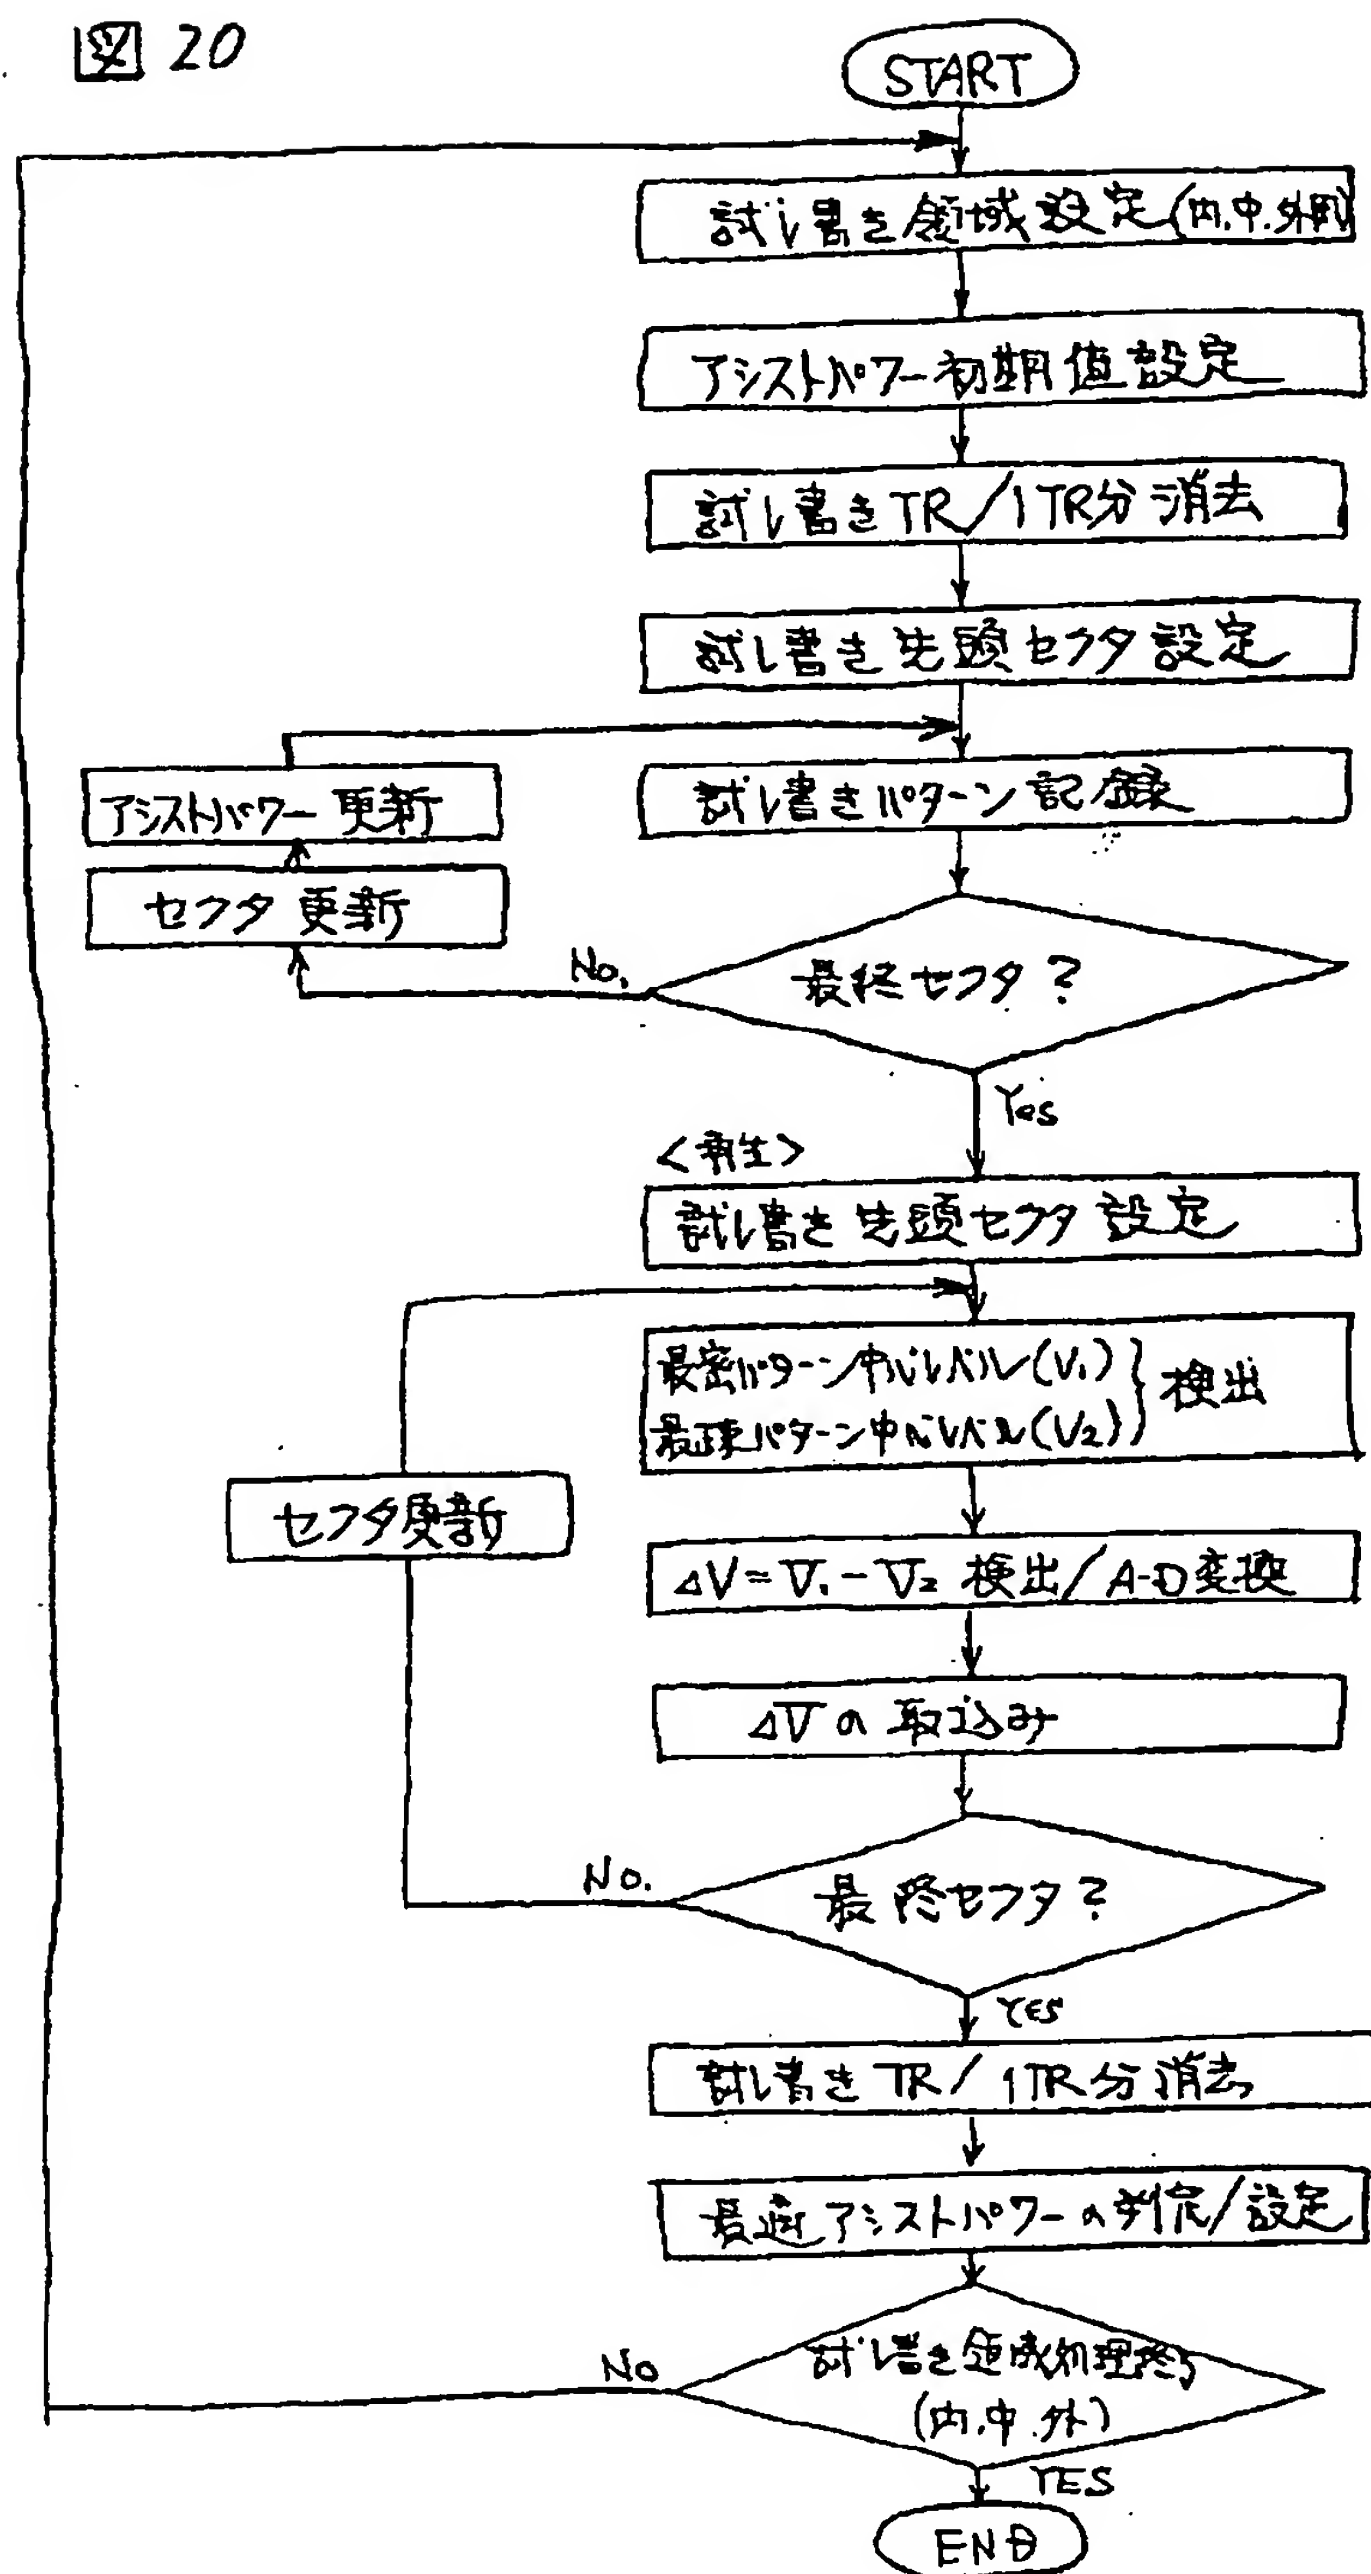 図 20
START
試し書き領域設定(内.中.外周)
アシストパワー初期値設定
試し書きTR/1TR分消去
試し書き先頭セクタ設定
試し書きパターン記録
アシストパワー更新
セクタ更新
最終セクタ?
No.
Yes
<再生>
試し書き先頭セクタ設定
最密パターン中心レベル(V1)
最疎パターン中心レベル(V2)
} 検出
セクタ更新
ΔV=V1-V2 検出/A-D変換
ΔVの取込み
最終セクタ?
No.
YES
試し書きTR/1TR分消去
最適アシストパワーの判定/設定
試し書き領域処理終了
(内.中.外)
No
YES
END